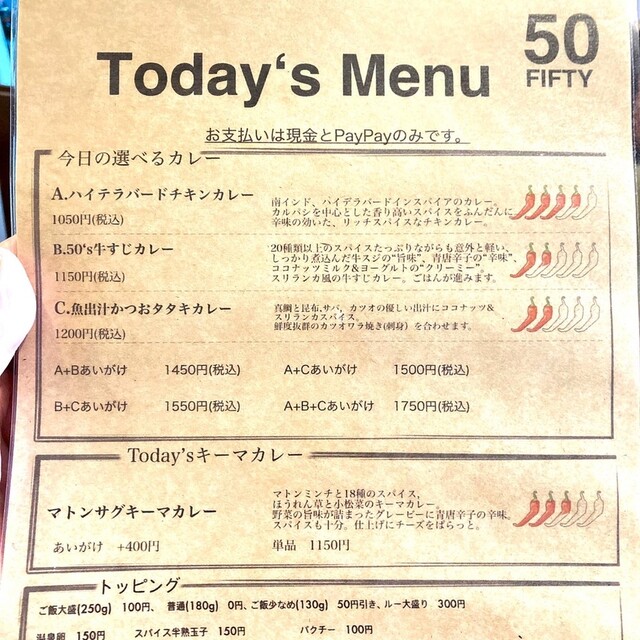 Today's Menu
50
FIFTY
お支払いは現金とPayPayのみです。
今日の選べるカレー
A.ハイテラバードチキンカレー
1050円(税込)
南インド、ハイデラバードインスパイアのカレー。
カルパシを中心とした香り高いスパイスをふんだんに
辛味の効いた、リッチスパイスなチキンカレー。
B.50's牛すじカレー
1150円(税込)
20種類以上のスパイスたっぷりながらも意外と軽い、
しっかり煮込んだ牛スジの"旨味"、青唐辛子の"辛味"、
ココナッツミルク&ヨーグルトの"クリーミー"。
スリランカ風の牛すじカレー。ごはんが進みます。
C.魚出汁かつおタタキカレー
1200円(税込)
真鯛と昆布,サバ，カツオの優しい出汁にココナッツ&
スリランカスパイス。
鮮度抜群のカツオワラ焼き(刺身）を合わせます。
A+Bあいがけ 1450円(税込) A+Cあいがけ 1500円(税込)
B+Cあいがけ 1550円(税込) A+B+Cあいがけ 1750円(税込)
Today'sキーマカレー
マトンサグキーマカレー
マトンミンチと18種のスパイス，
ほうれん草と小松菜のキーマカレー。
野菜の旨味が詰まったグレービーに青唐辛子の辛味。
スパイスも十分。仕上げにチーズをぱらっと。
あいがけ +400円 単品 1150円
トッピング
ご飯大盛(250g) 100円、 普通(180g) 0円、ご飯少なめ(130g) 50円引き、ルー大盛り 300円
温泉卵 150円 スパイス半熟玉子 150円 パクチー 100円